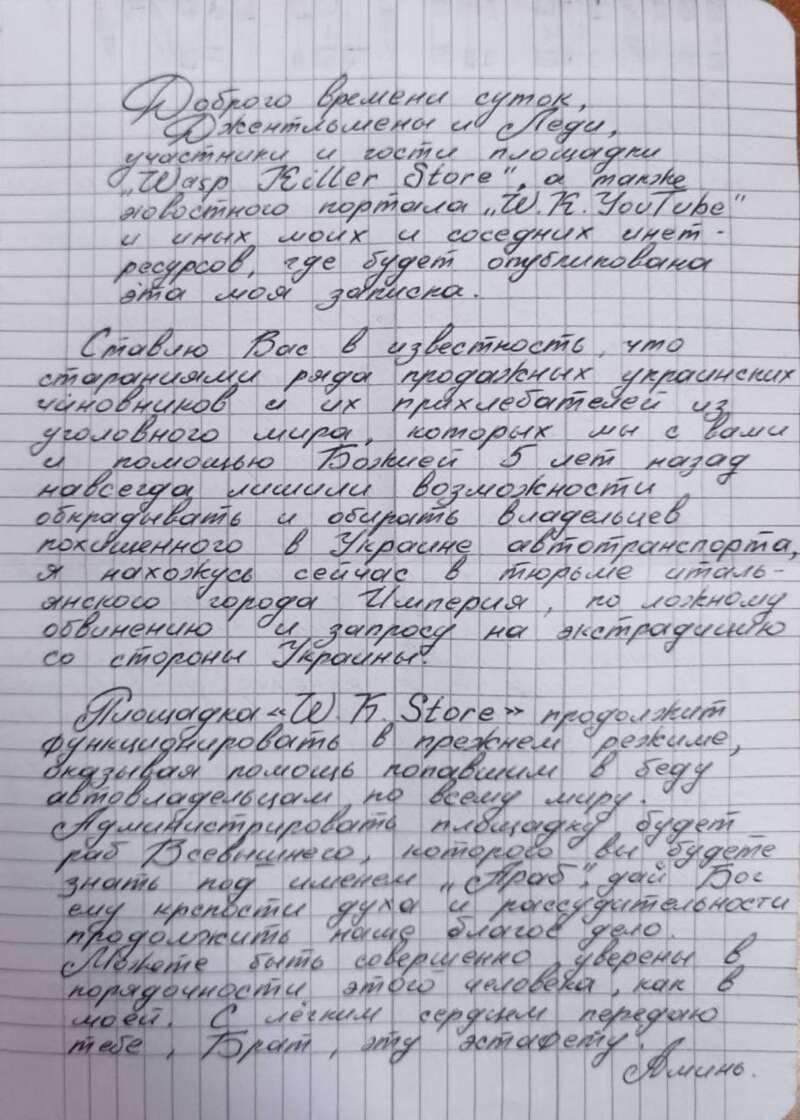 Доброго времени суток,
Джентльмены и Леди,
участники и гости площадки
„Wasp Killer Store", а также
новостного портала „W.K. YouTube"
и иных моих и соседних инет-
ресурсов, где будет опубликована
эта моя записка.
Ставлю Вас в известность, что
стараниями ряда продажных украинских
чиновников и их прихлебателей из
уголовного мира, которых мы с вами
и помощью Божией 5 лет назад
навсегда лишили возможности
обкрадывать и обирать владельцев
похищенного в Украине автотранспорта,
я нахожусь сейчас в тюрьме италь-
янского города Империя, по ложному
обвинению и запросу на экстрадицию
со стороны Украины.
Площадка «W. K. Store» продолжит
функционировать в прежнем режиме,
оказывая помощь попавшим в беду
автовладельцам по всему миру.
Администрировать площадку будет
раб Всевышнего, которого вы будете
знать под именем „Араб", дай Бог
ему крепости духа и рассудительности
продолжить наше благое дело.
Можете быть совершенно уверены в
порядочности этого человека, как в
моей. С лёгким сердцем передаю
тебе, Брат, эту эстафету.
Аминь.